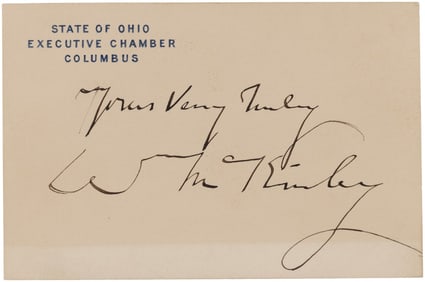 STATE OF OHIO
EXECUTIVE CHAMBER
COLUMBUS
Yours Very Truly
Wm McKinley